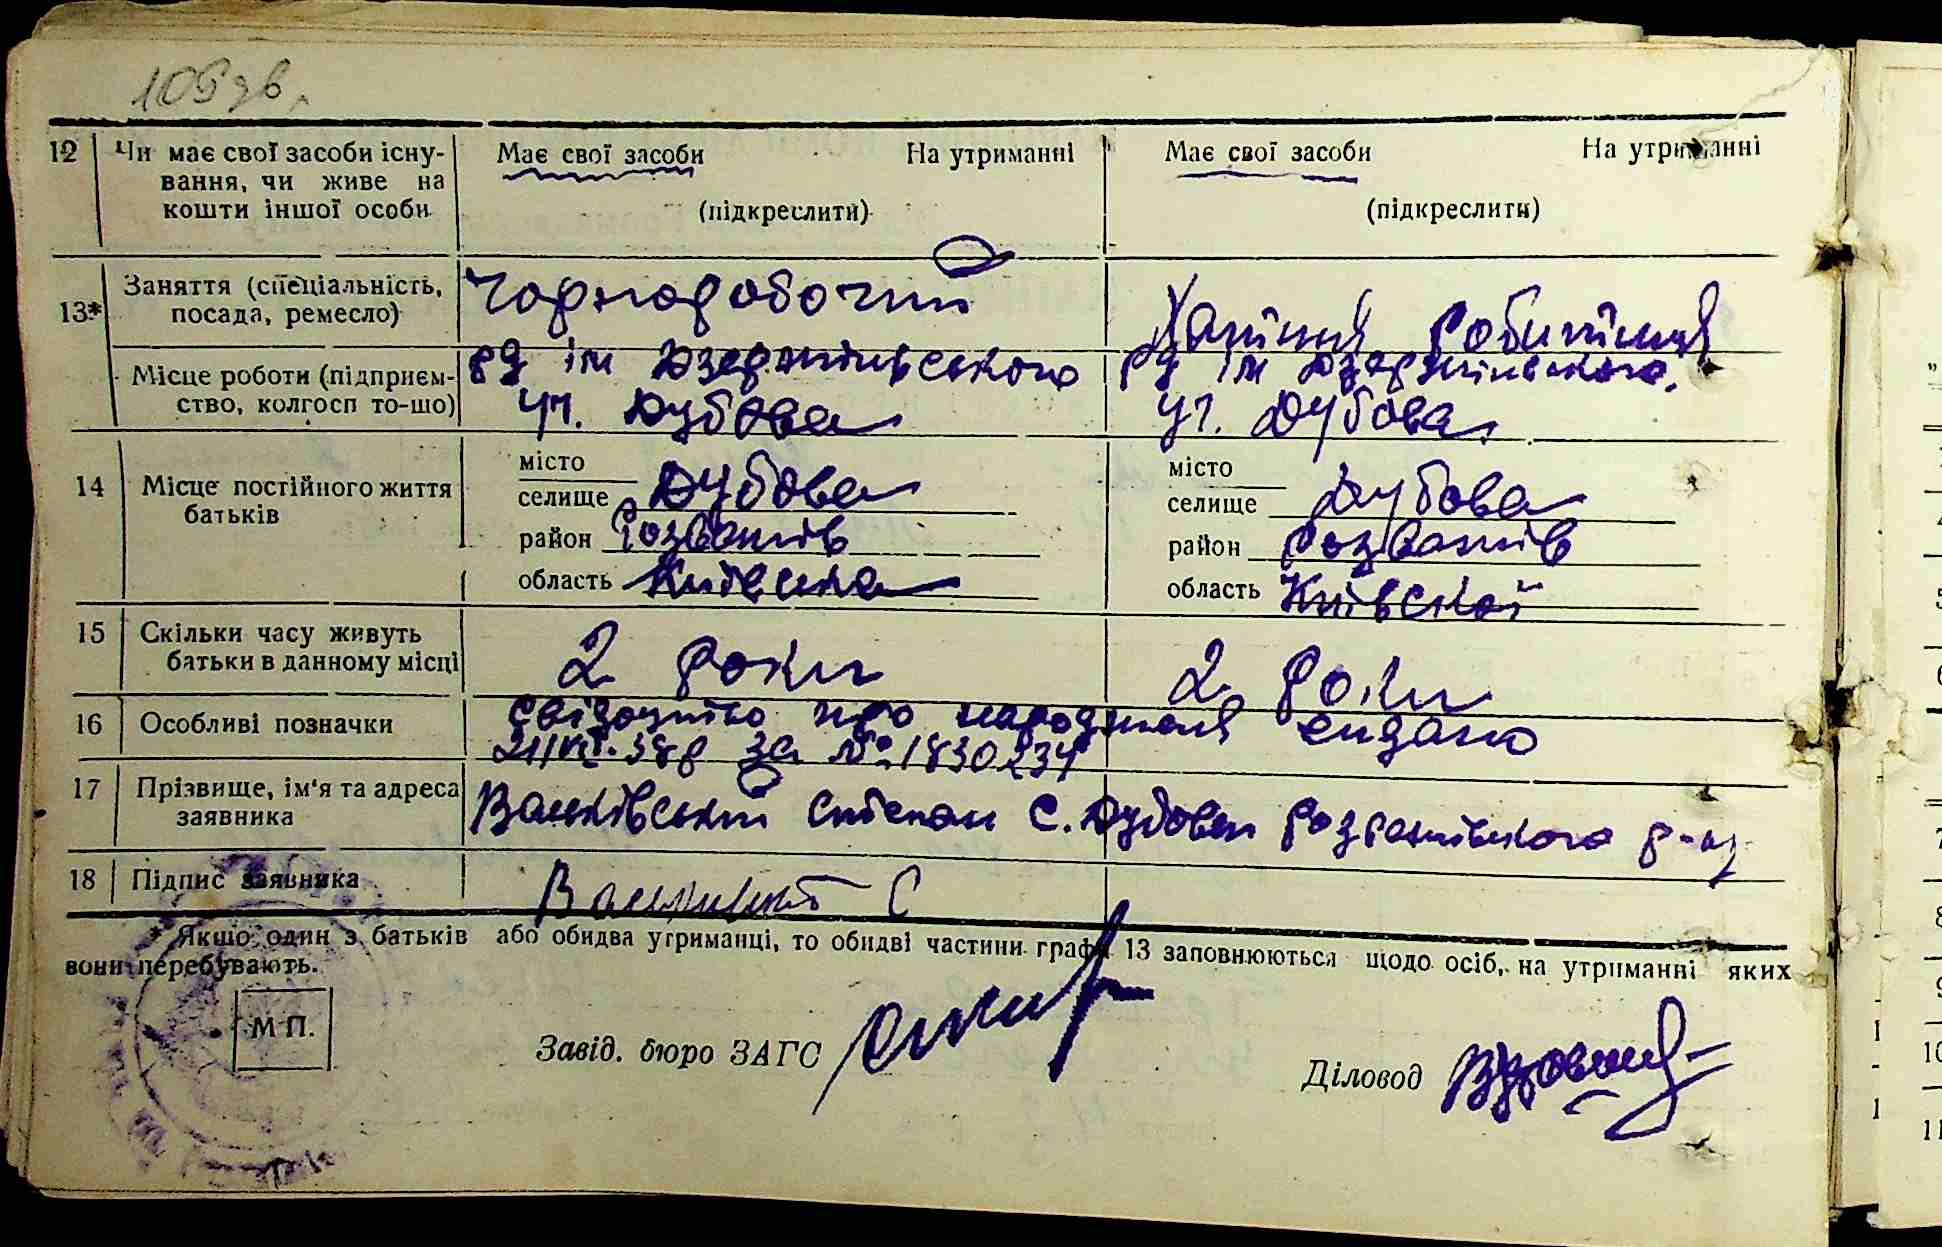 109 зв.
12 Чи має свої засоби існу- Має свої засоби На утриманні Має свої засоби На утриманні
вання, чи живе на
кошти іншої особи (підкреслити) (підкреслити)
13* Заняття (спеціальність, Чорноробочий
посада, ремесло) Хатіння робитниця
Місце роботи (підприєм- рд ім Дзержинського рд ім Дзержинського,
ство, колгосп то-що) уч. Дубова уч. Дубова
14 Місце постійного життя
батьків
місто місто
селище Дубова селище Дубова
район Розважів район Розважів
область Київська область Київської
15 Скільки часу живуть 2 роки 2 роки
батьки в данному місці
16 Особливі позначки Свідоцтво про народження видано
21/VII.38р за № 1830234
17 Прізвище, ім'я та адреса
заявникаВаньківський Степан С. Дубова Розважівського р-ну
18 Підпис заявника С
* Якщо один з батьків або обидва утриманці, то обидві частини графи 13 заповнюються щодо осіб, на утриманні яких
вони перебувають.
М П.
Завід. бюро ЗАГС
Діловод